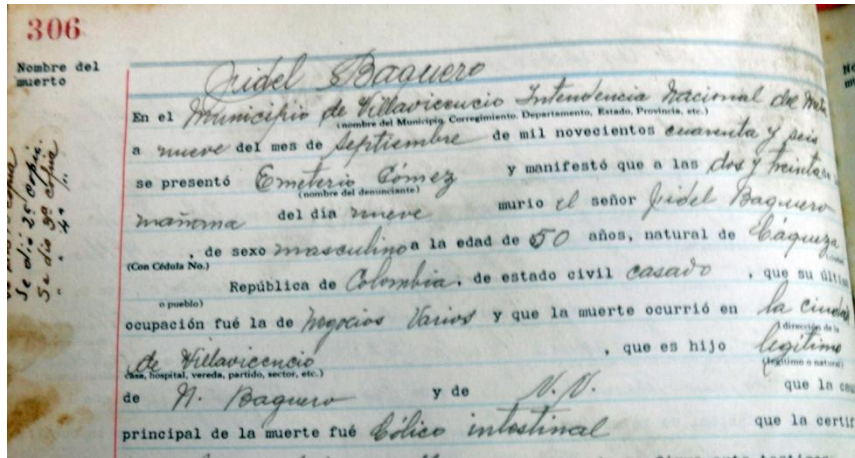 306
Nombre del
muerto
Fidel Baquero
En el Municipio de Villavicencio Intendencia Nacional del Meta
(nombre del Municipio, Corregimiento, Departamento, Estado, Provincia, etc.)
a nueve del mes de Septiembre de mil novecientos cuarenta y seis
se presentó Emeterio Gómez y manifestó que a las dos y treinta
(nombre del denunciante)
mañana del día nueve murio el señor Fidel Baquero
, de sexo masculino a la edad de 50 años, natural de Cáqueza
(Con Cédula No.)
República de Colombia, de estado civil casado, que su últim
o pueblo)
ocupación fué la de Negocios Varios y que la muerte ocurrió en la ciudad
(dirección de la
de Villavicencio, que es hijo legítimo
casa, hospital, vereda, partido, sector, etc.) (legítimo o natural)
de N. Baquero y de N.N. que la cau
principal de la muerte fué Cólico intestinal que la certif
Se dió 2ª copia.
Se dió 3ª copia
" " 4ª "